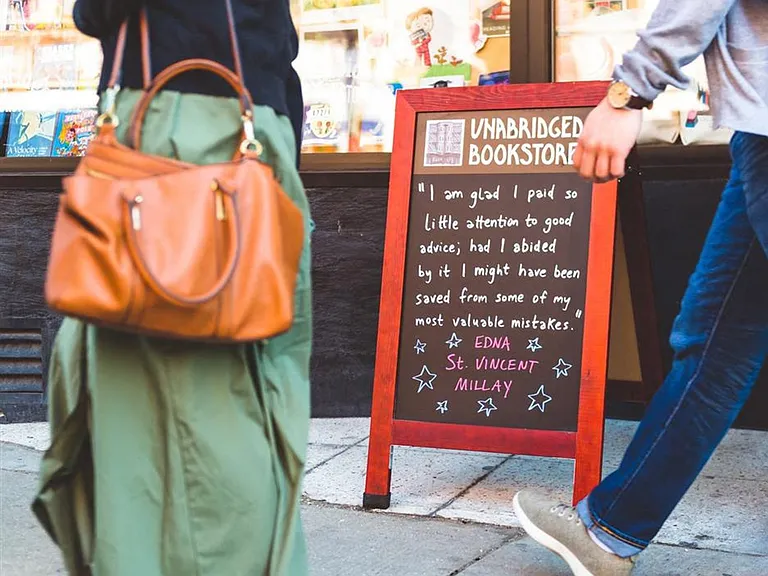 UNABRIDGED
BOOKSTORE
"I am glad I paid so
little attention to good
advice; had I abided
by it I might have been
saved from some of my
most valuable mistakes."
EDNA
St. VINCENT
MILLAY
Velocity